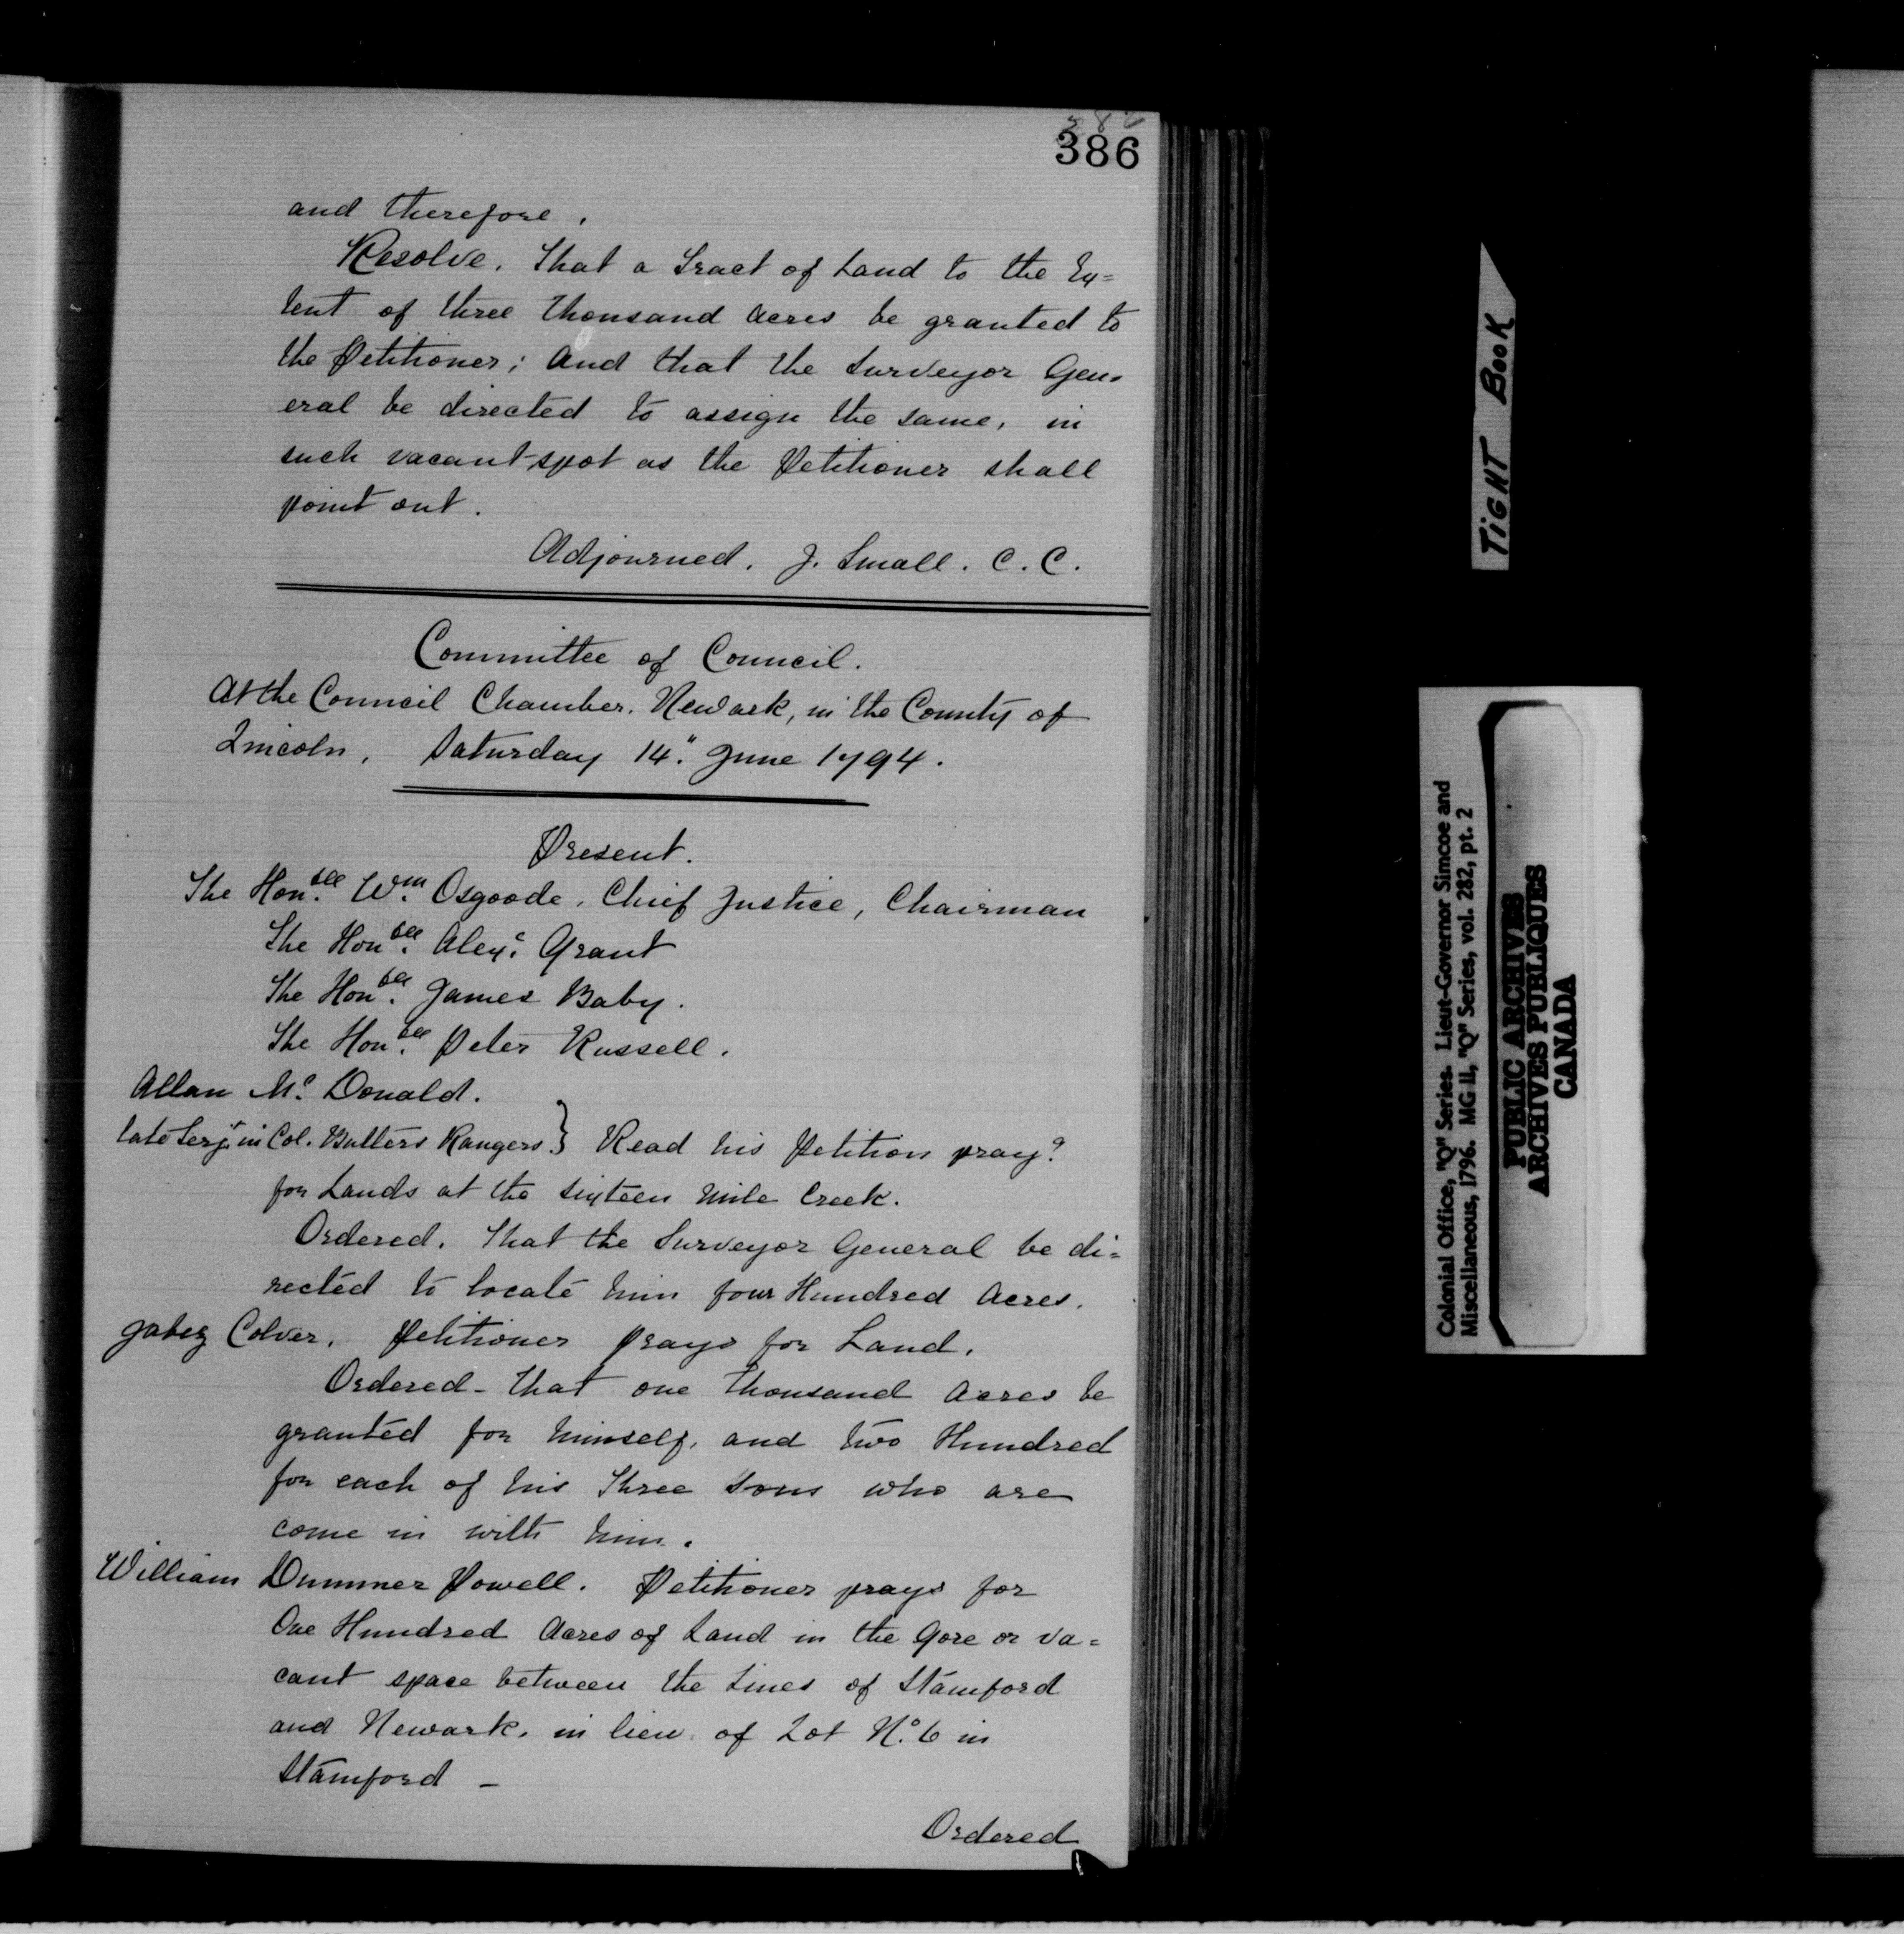 386
and therefore.
Resolve. That a Tract of Land to the Ex=
tent of three thousand acres be granted to
the Petitioner; and that the Surveyor Gen=
eral be directed to assign the same, in
such vacant spot as the Petitioner shall
point out.
Adjourned. J. Small. C. C.
Committee of Council.
At the Council Chamber. Newark, in the County of
Lincoln, Saturday 14." June 1794.
Present.
The Hon.ble Wm. Osgoode, Chief Justice, Chairman
The Hon.ble Alex.r Grant
The Hon.ble James Baby.
The Hon.ble Peter Russell.
Allan Mc. Donald.
late Serj.t in Col. Butlers Rangers } Read his Petition pray.g
for Lands at the Sixteen Mile Creek.
Ordered. That the Surveyor General be di=
rected to locate him four Hundred Acres.
Jabez Colver. Petitioner prays for Land.
Ordered - that one thousand Acres be
granted for himself, and two Hundred
for each of his Three Sons who are
come in with him.
William Dummer Powell. Petitioner prays for
One Hundred Acres of Land in the Gore or va=
cant space between the Lines of Stamford
and Newark, in lieu of Lot No. 6 in
Stamford -
Ordered
TIGHT BOOK
Colonial Office, "Q" Series. Lieut-Governor Simcoe and
Miscellaneous, 1796. MG 11, "Q" Series, vol. 282, pt. 2
PUBLIC ARCHIVES
ARCHIVES PUBLIQUES
CANADA